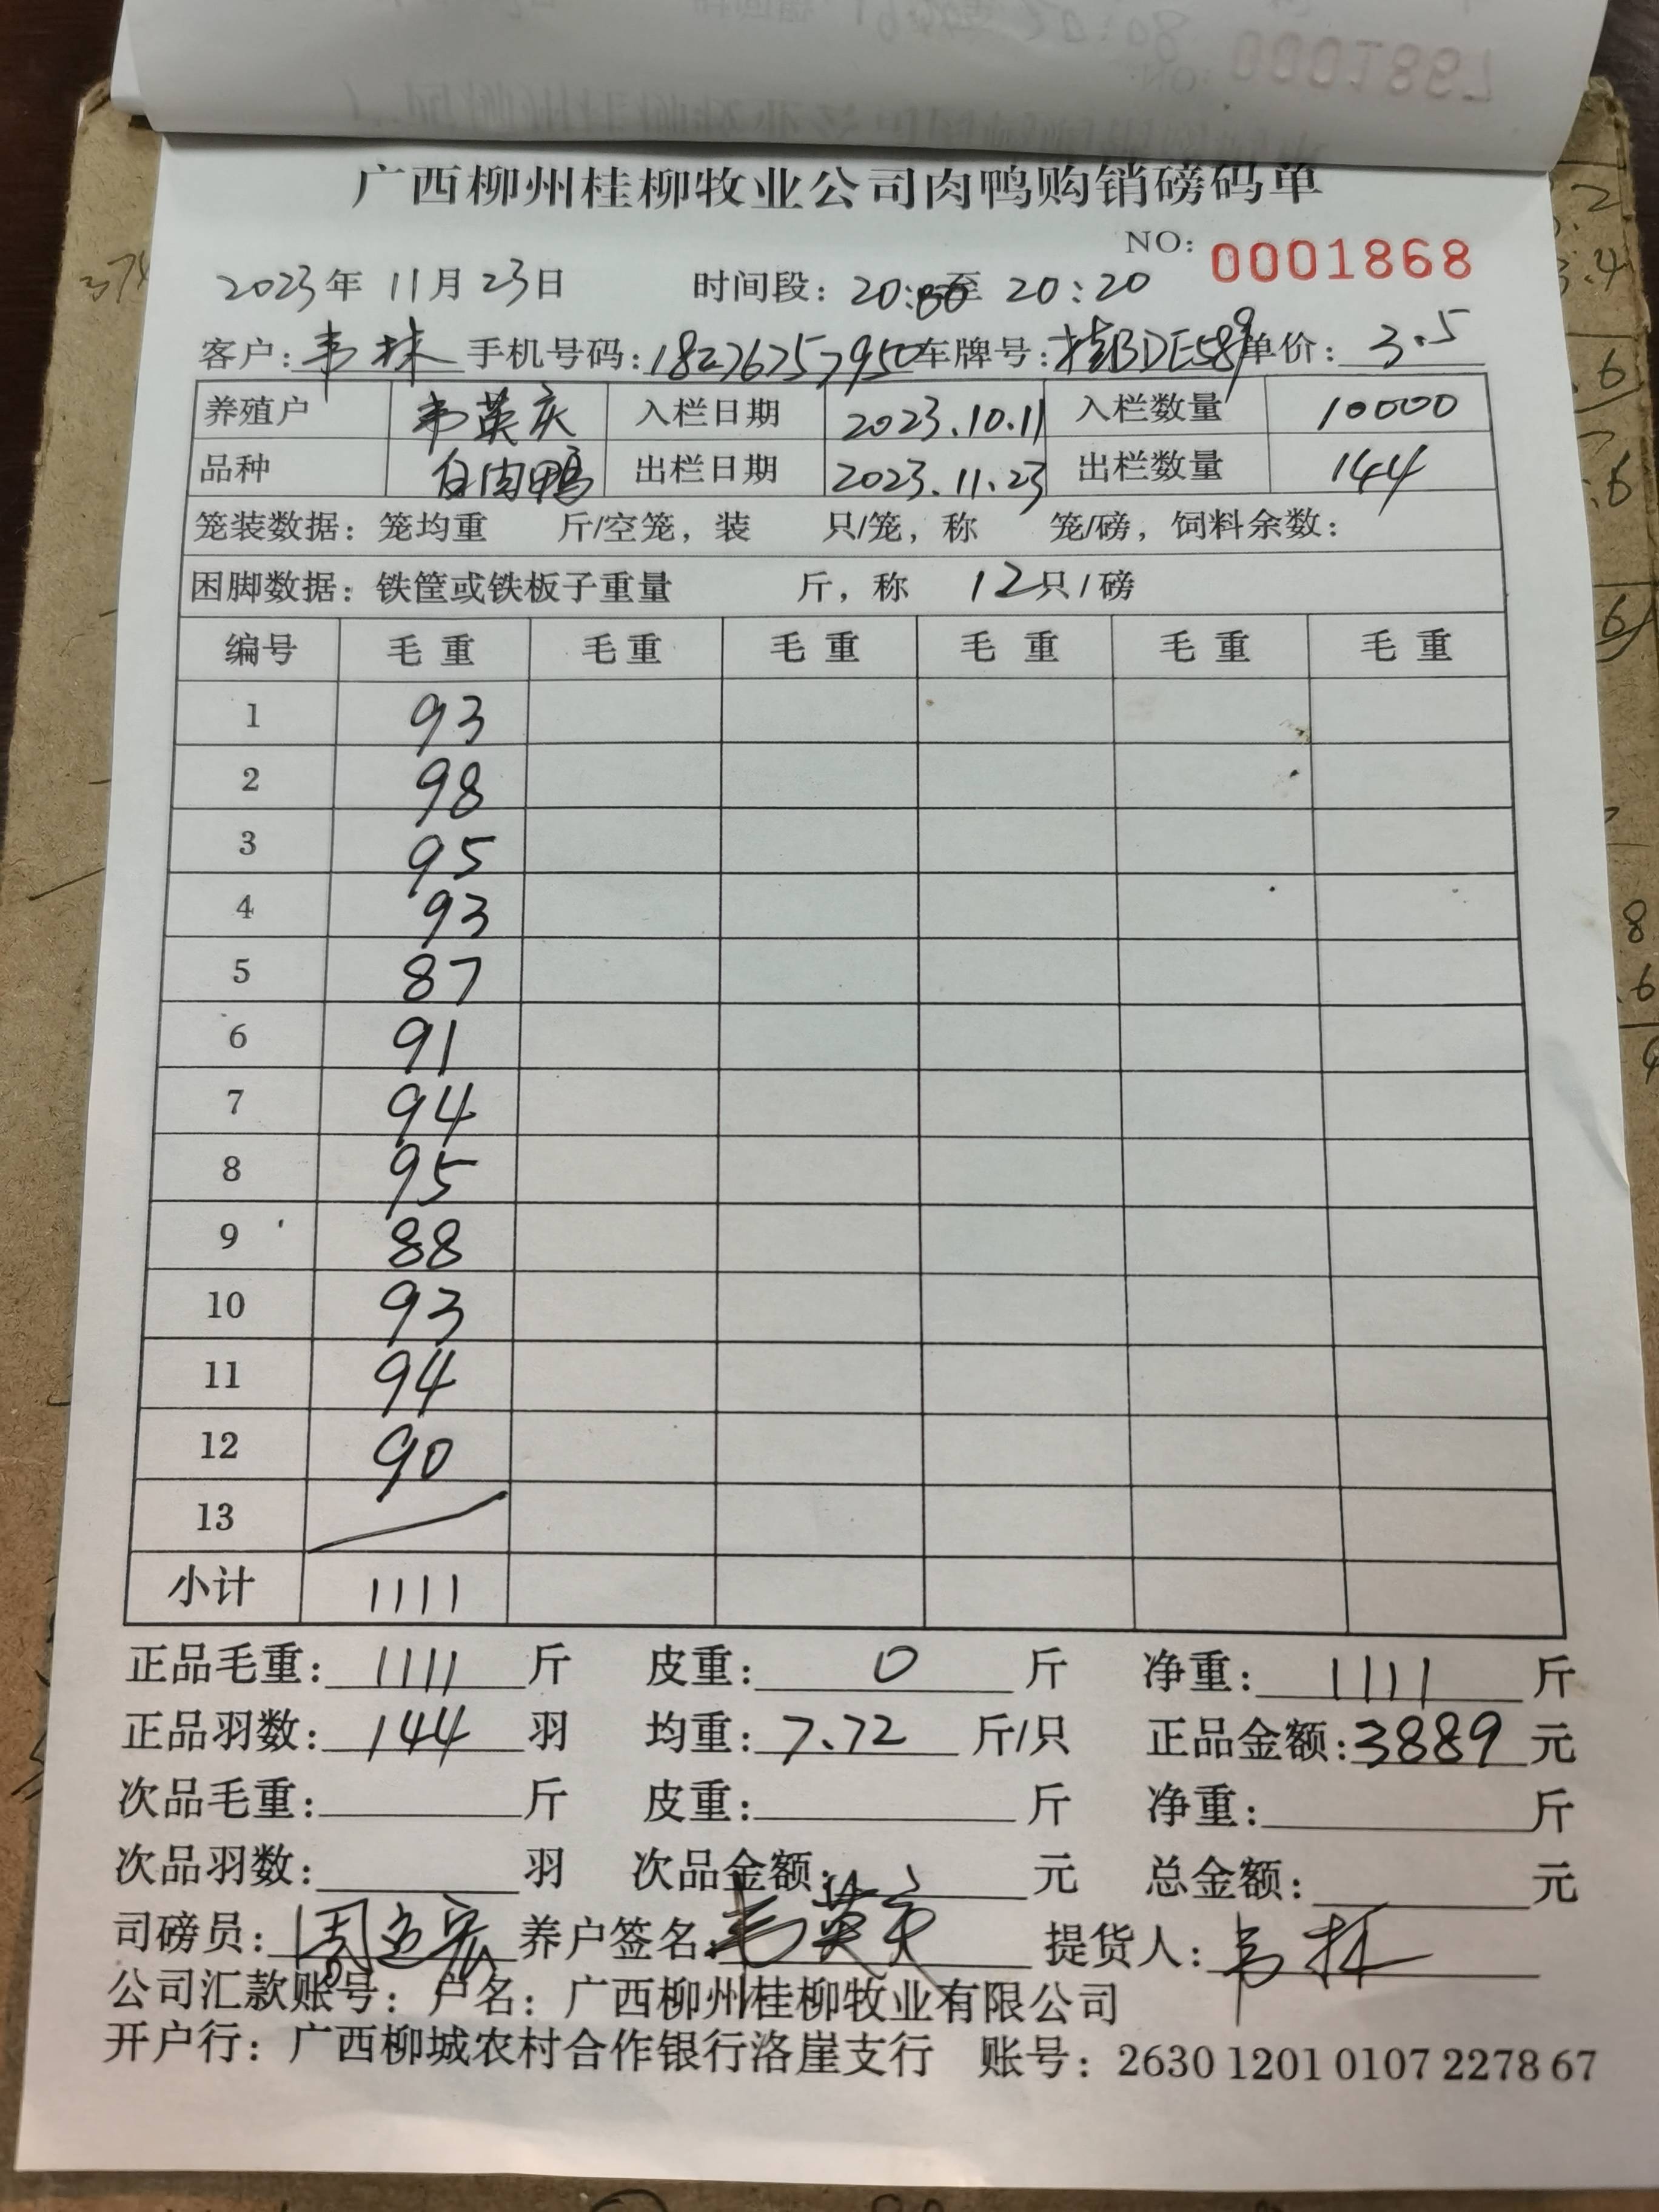 广西柳州桂柳牧业公司肉鸭购销磅码单
NO: 0001868
2023年 11月 23日 时间段: 20:00至 20:20
客户: 韦林 手机号码: 18276757950 车牌号: 桂BDE589 单价: 3.5
养殖户 韦英庆 入栏日期 2023.10.11 入栏数量 10000
品种 白肉鸭 出栏日期 2023.11.23 出栏数量 144
笼装数据: 笼均重 斤/空笼, 装 只/笼, 称 笼/磅, 饲料余数:
困脚数据: 铁筐或铁板子重量 斤, 称 12只/磅
编号 毛重 毛重 毛重 毛重 毛重 毛重
1 93
2 98
3 95
4 93
5 87
6 91
7 94
8 95
9 88
10 93
11 94
12 90
13
小计 1111
正品毛重: 1111 斤 皮重: 0 斤 净重: 1111 斤
正品羽数: 144 羽 均重: 7.72 斤/只 正品金额: 3889 元
次品毛重: 斤 皮重: 斤 净重: 斤
次品羽数: 羽 次品金额: 元 总金额: 元
司磅员: 养户签名: 韦英庆 提货人: 韦林
公司汇款账号: 户名: 广西柳州桂柳牧业有限公司
开户行: 广西柳城农村合作银行洛崖支行 账号: 2630 1201 0107 2278 67